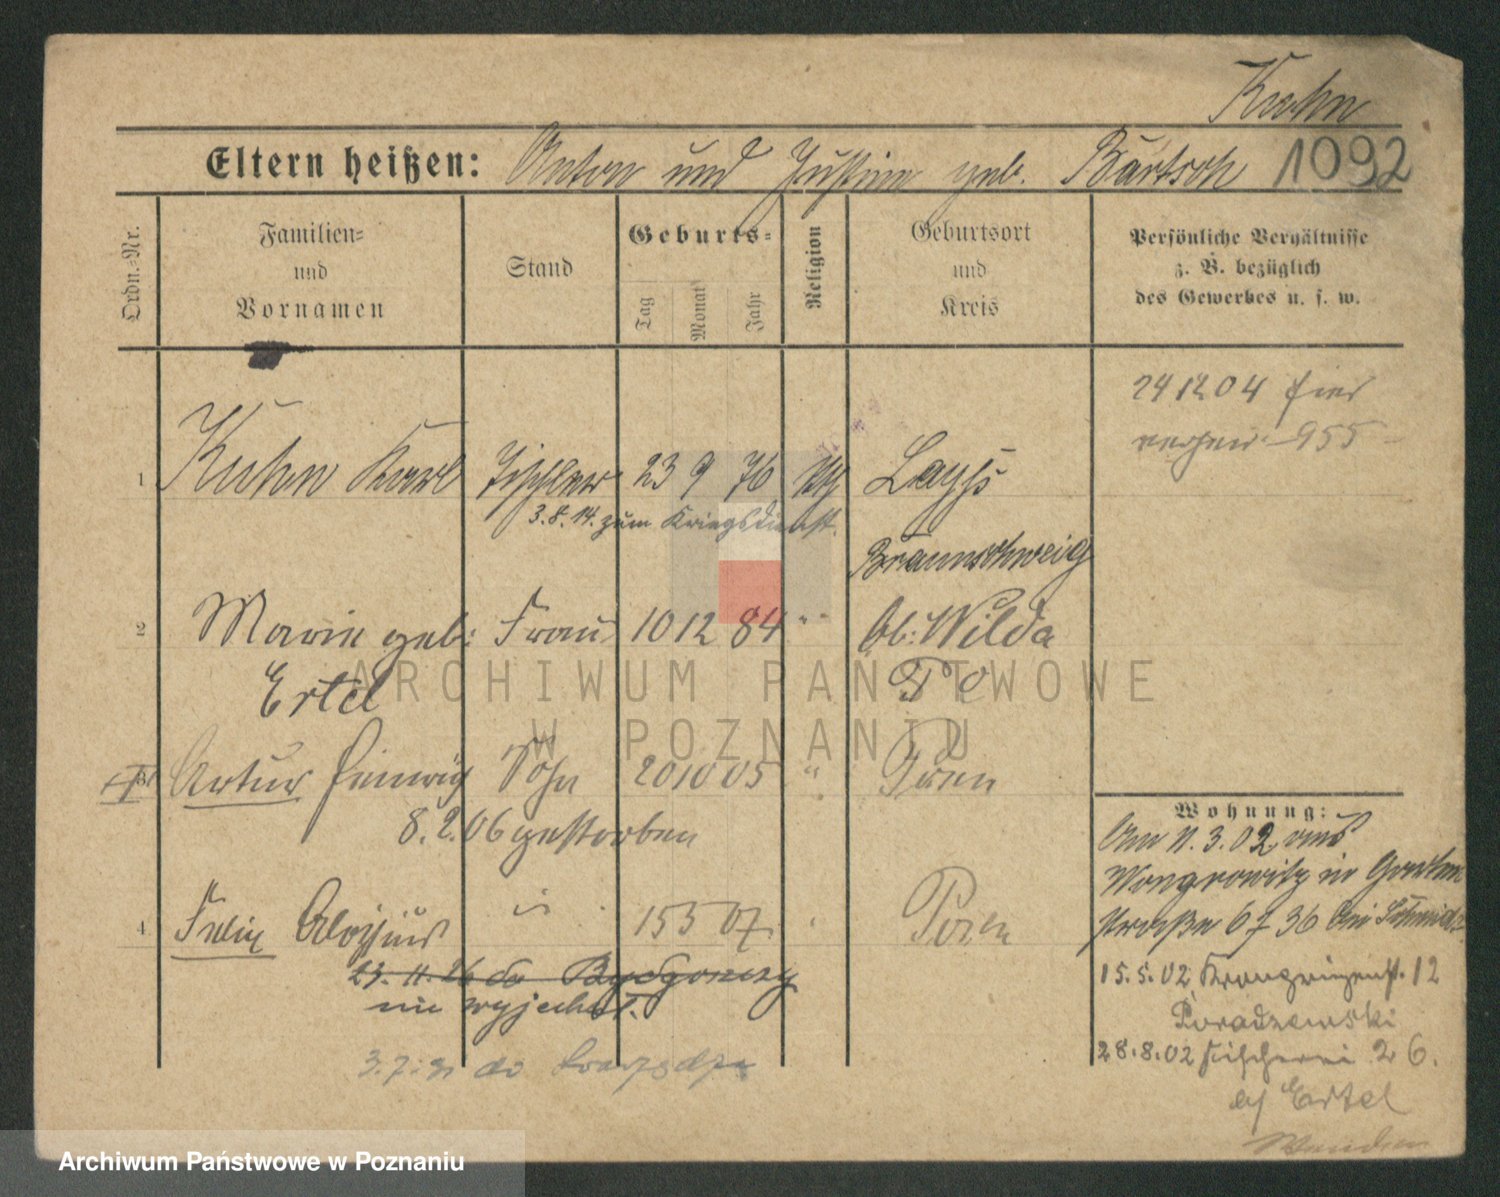 Kuhn
Eltern heißen: Anton und Justine geb. Bartsch 1092
Ordn.-Nr.
Familien- und Vornamen
Stand
Geburts-
Tag
Monat
Jahr
Religion
Geburtsort und Kreis
Persönliche Verhältnisse z. B. bezüglich des Gewerbes u. s. w.
24 12 04 955
1 Kuhn Karl Tischler 23 9 76
3.8.14. zum Kriegsdienst.
Braunschweig
2 Marie geb. Frau 10 12 84 " Ob: Wilda
Ertel Po
3 Artur Sohn 20 10 05 " Posen
8.2.06 gestorben
4 Felix Aloysius " 15 5 07 " Posen
23.11.26 do Bydgoszczy
nie wyjechał.
3.7. do
Wohnung:
Am 11.3.02 aus
Wongrowitz in Garten
straße 6 f 36 bei
15.5.02 12
Poradzewski
28.8.02 Fischerei 26.
bei Ertel
ARCHIWUM PAŃSTWOWE
W POZNANIU
Archiwum Państwowe w Poznaniu